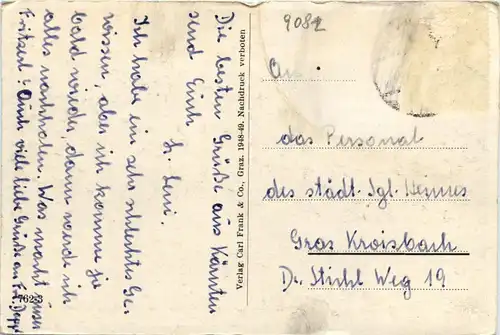 Die besten Grüße aus Kärnten
send Euch
Leni.
Ich habe ein sehr schlechtes Ge-
wissen, aber ich komme ja
bald wieder, dann werde ich
alles nachholen. Was macht unser
Fritzerl? Auch viele liebe Grüße an
Verlag Carl Frank & Co., Graz. 1948-49. Nachdruck verboten
762-3
9082
An
das Personal
des städt. Sgl. Heimes
Graz Kroisbach
Dr. Stichl Weg 19